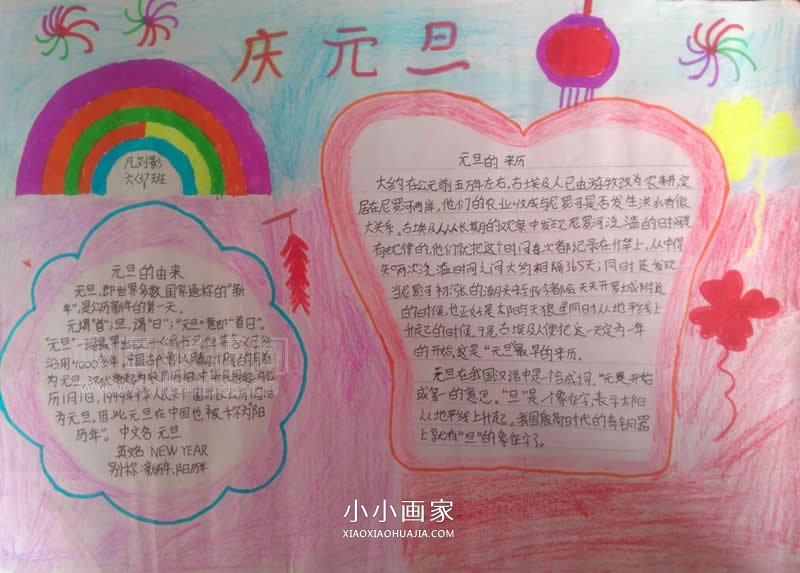 庆元旦
凡刘影
六<3>班
元旦的由来
元旦,即世界多数国家通称的"新
年",是公历新年的第一天。
元谓"首";旦,谓"日";"元旦"意即"首日"。
"元旦"一词最早出
沿用4000多年。中国古代曾以
为元旦,
历1月1日,1949年中华人民共和国
为元旦,因此元旦在中国也被称为"阳
历年"。中文名 元旦
英文名 NEW YEAR
别称 新历年、阳历年
元旦的来历
大约在公元前五万年左右,古埃及人已由游牧改为农耕,定
居在尼罗河两岸,他们的农业收成与尼罗河是否发生洪水有很
大关系。古埃及人从长期的观察中发现尼罗河泛滥的时间是
有规律的,他们就把这个时间每次都记录在竹竿上,从中得
知两次泛滥时间之间大约相隔365天;同时还发现
当尼罗河初涨的潮头来到今天开罗城附近
的时候,也正好是太阳与天狼星同时从地平线上
升起的时候。于是古埃及人便把这一天定为一年
的开始,这是"元旦"最早的来历。
元旦在我国汉语中是一个合成词。"元"是开始
或第一的意思。"旦"是一个象征字,表示太阳
从地平线上升起。我国殷商时代的青铜器
上就有"旦"的象征字了。
小小画家
XIAOXIAOHUAJIA.COM